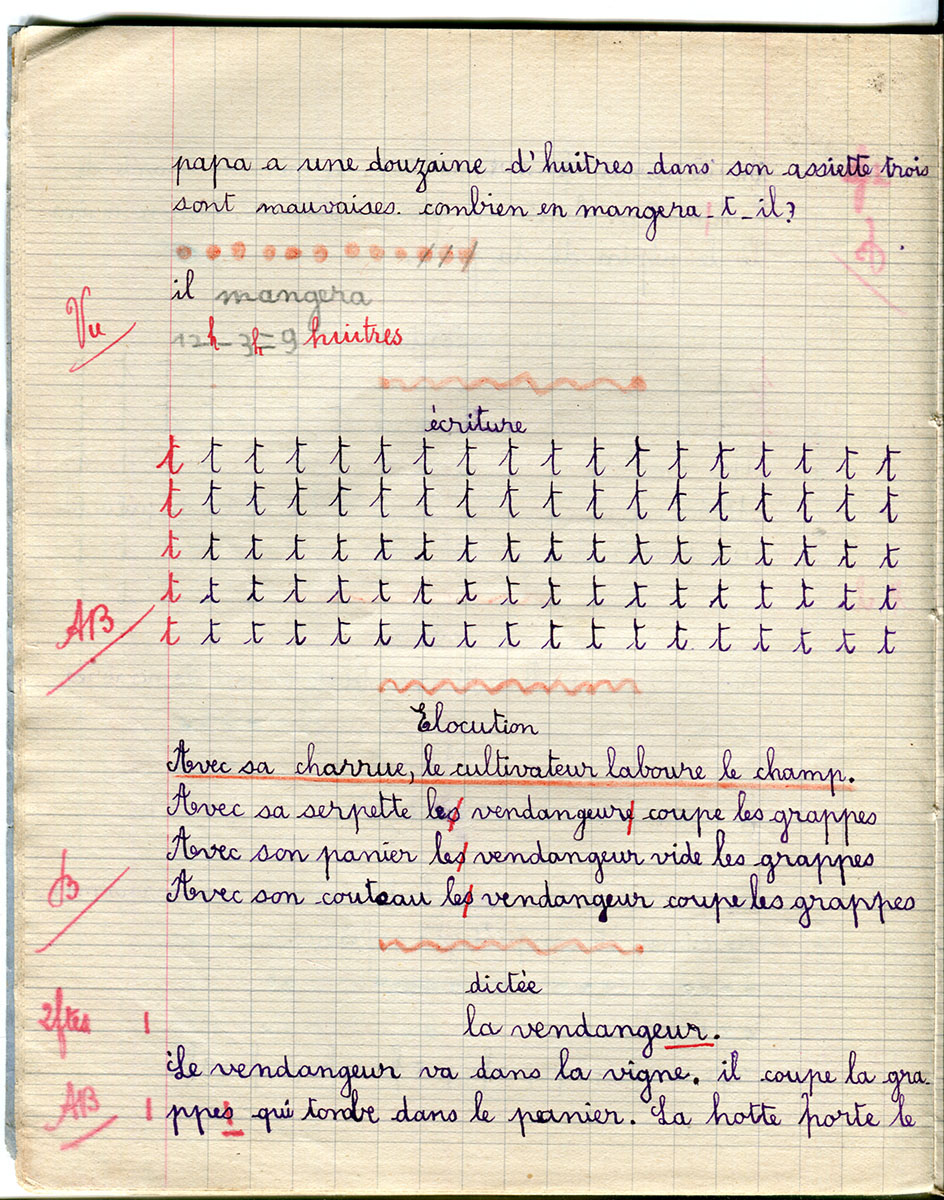 papa a une douzaine d'huitres dans son assiette trois
sont mauvaises. combien en mangera-t-il?
il mangera
Vu
12h - 3h = 9 huitres
écriture
t t t t t t t t t t t t t t t t t t
t t t t t t t t t t t t t t t t t t
t t t t t t t t t t t t t t t t t t
t t t t t t t t t t t t t t t t t t
AB t t t t t t t t t t t t t t t t t t
Elocution
Avec sa charrue, le cultivateur laboure le champ.
Avec sa serpette les vendangeurs coupe les grappes
Avec son panier les vendangeur vide les grappes
B Avec son couteau les vendangeur coupe les grappes
dictée
2ftes 1 la vendangeur.
Le vendangeur va dans la vigne. il coupe la gra-
AB 1 ppes qui tonbe dans le panier. La hotte porte le